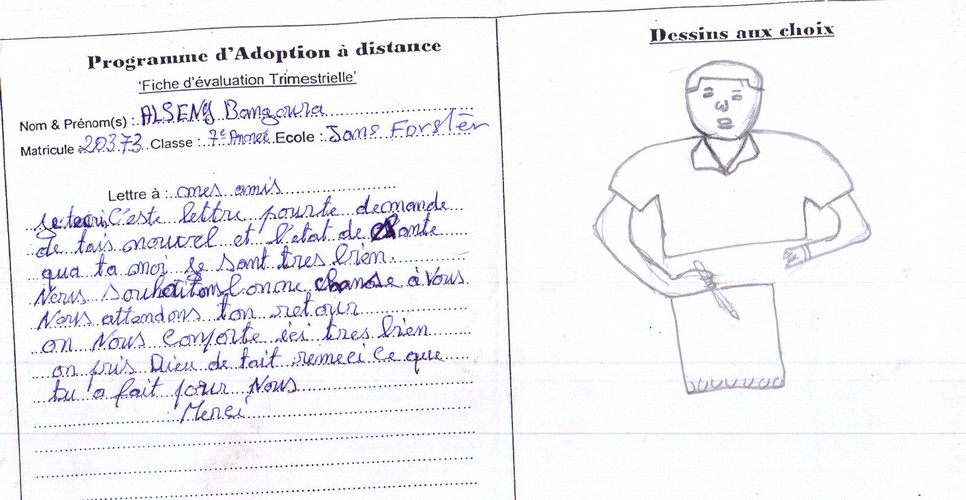 Programme d'Adoption à distance
'Fiche d'évaluation Trimestrielle'
Nom & Prénom(s) : ALSENY Bangoura
Matricule 20373 Classe : 7e Année Ecole : Sans Forstèr
Lettre à : mes amis
Je tecri C'este lettre pourte demande
de tais nouvel et l'etat de Sante
qua ta moi je sant tres bien.
Nous souhaitons bonne chanse à Vous
Nous attendons ton retour
on Nous Conforte ici tres bien
on pris Dieu de tait remeci Ce que
tu a fait pour Nous
Merci
Dessins aux choix